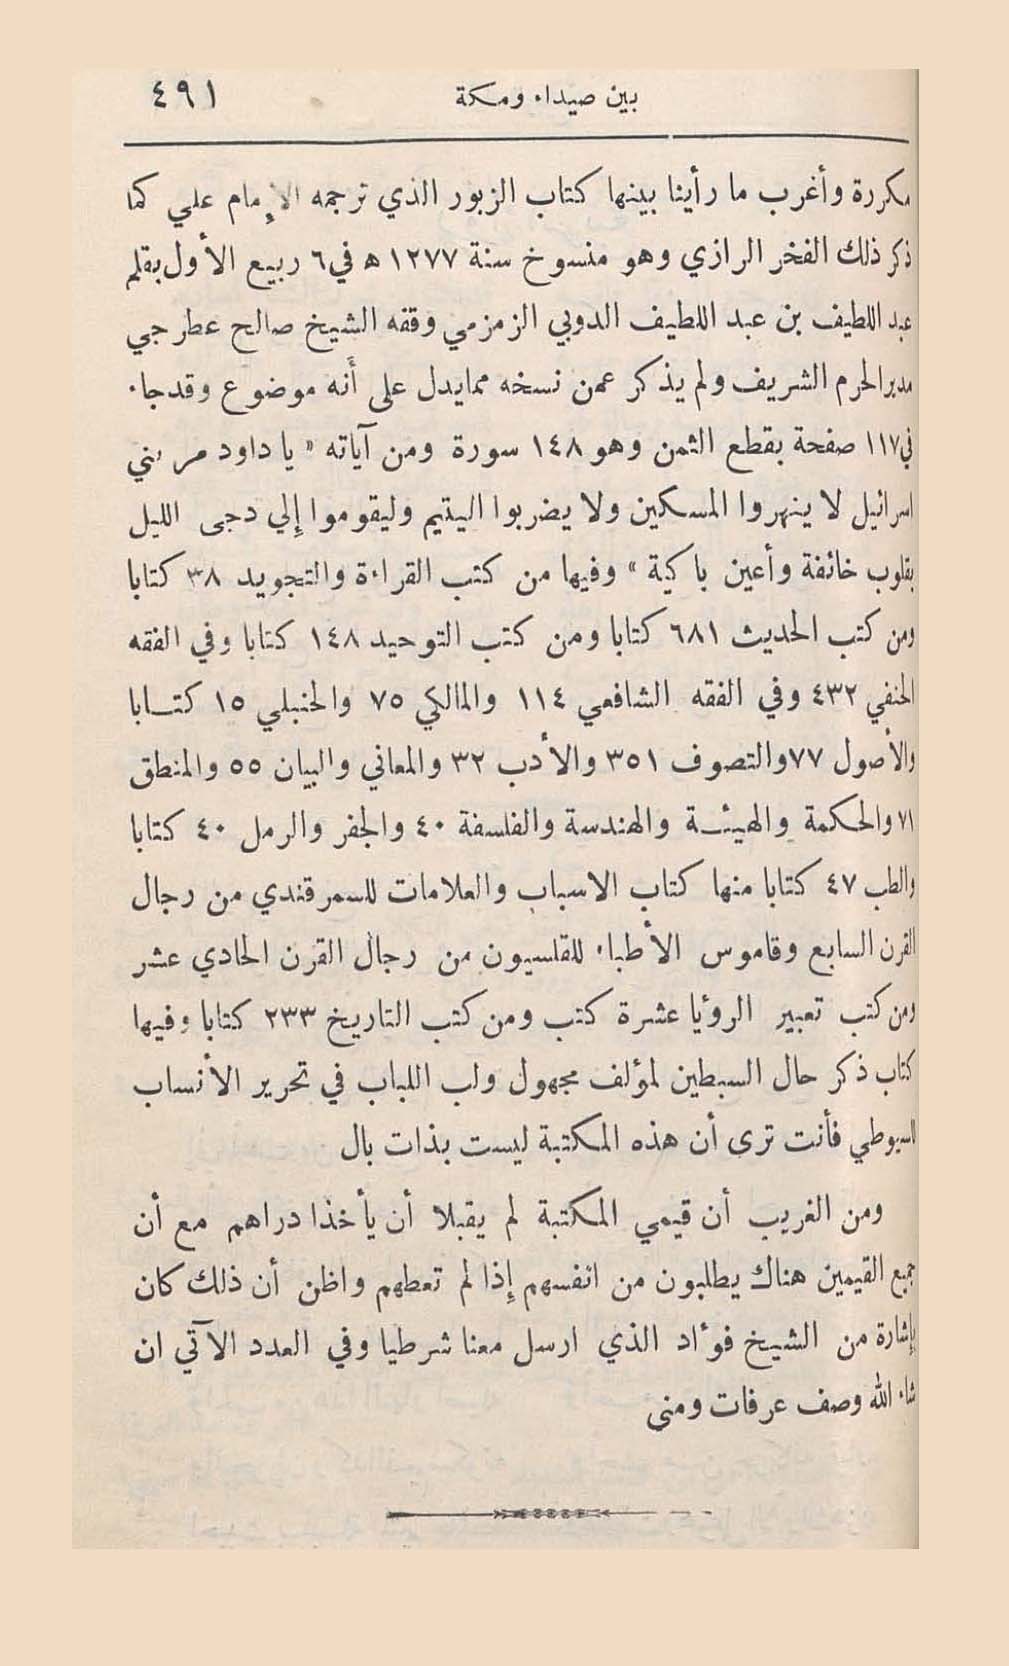 بين صيداء ومكة ٤٩١
مكررة وأغرب ما رأينا بينها كتاب الزبور الذي ترجمه الإمام علي كما
ذكر ذلك الفخر الرازي وهو منسوخ سنة ١٢٧٧ ه في ٦ ربيع الأول بقلم
عبد اللطيف بن عبد اللطيف الدوبي الزمزمي وقفه الشيخ صالح عطرجي
مدير الحرم الشريف ولم يذكر عمن نسخه مما يدل على أنه موضوع وقد جاء
في ١١٧ صفحة بقطع الثمن وهو ١٤٨ سورة ومن آياته « يا داود مر بني
اسرائيل لا ينهروا المسكين ولا يضربوا اليتيم وليقوموا إلي دجى الليل
بقلوب خائفة وأعين باكية » وفيها من كتب القراءة والتجويد ٣٨ كتابا
ومن كتب الحديث ٦٨١ كتابا ومن كتب التوحيد ١٤٨ كتابا وفي الفقه
الحنفي ٤٣٢ وفي الفقه الشافعي ١١٤ والمالكي ٧٥ والحنبلي ١٥ كتـابا
والأصول ٧٧ والتصوف ٣٥١ والأدب ٣٢ والمعاني والبيان ٥٥ والمنطق
٧١ والحكمة والهيئـة والهندسة والفلسفة ٤٠ والجفر والرمل ٤٠ كتابا
والطب ٤٧ كتابا منها كتاب الاسباب والعلامات للسمرقندي من رجال
القرن السابع وقاموس الأطباء للقلسيون من رجال القرن الحادي عشر
ومن كتب تعبير الروٴيا عشرة كتب ومن كتب التاريخ ٢٣٣ كتابا وفيها
كتاب ذكر حال السبطين لموٴلف مجهول ولب اللباب في تحرير الأنساب
للسيوطي فأنت ترى أن هذه المكتبة ليست بذات بال
ومن الغريب أن قيمي المكتبة لم يقبلا أن يأخذا دراهم مع أن
جميع القيمين هناك يطلبون من انفسهم إذا لم تعطهم واظن أن ذلك كان
بإشارة من الشيخ فوٴاد الذي ارسل معنا شرطيا وفي العدد الآتي ان
شاء الله وصف عرفات ومنى